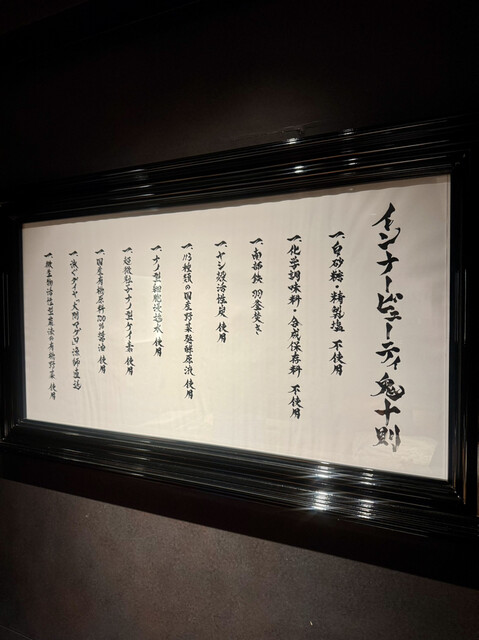 インナービューティ鬼十則
一、白砂糖・精製塩 不使用
一、化学調味料・合成保存料 不使用
一、南部鉄 羽釜焚き
一、ヤシ殻活性炭 使用
一、113種類の国産野菜発酵原液 使用
一、ナノ型細胞活塩水 使用
一、超微粒子ナノ型ケイ素 使用
一、国産有機原料100%醤油 使用
一、漁師直送
一、微生物活性型農法の有機野菜 使用